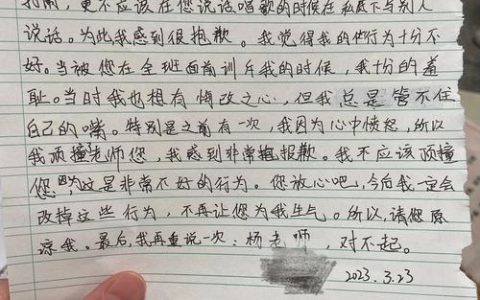 打闹，更不应该在您说话唱歌的时候在私底下与别人
说话。为此我感到很抱歉。我觉得我的他行为十分不
好。当被您在全班面前训斥我的时候，我十分的羞
耻。当时我也想有悔改之心，但我总是管不住
自己的嘴。特别是之前有一次，我因为心中愤怒，所以
我顶撞老师您，我感到非常抱歉。我不应该顶撞
您，因为这是非常不好的行为。您放心吧，今后我一定会
改掉这些行为，不再让您为我生气。所以，请您原
谅我。最后，我再重说一次：杨老师，对不起。
2023.3.23